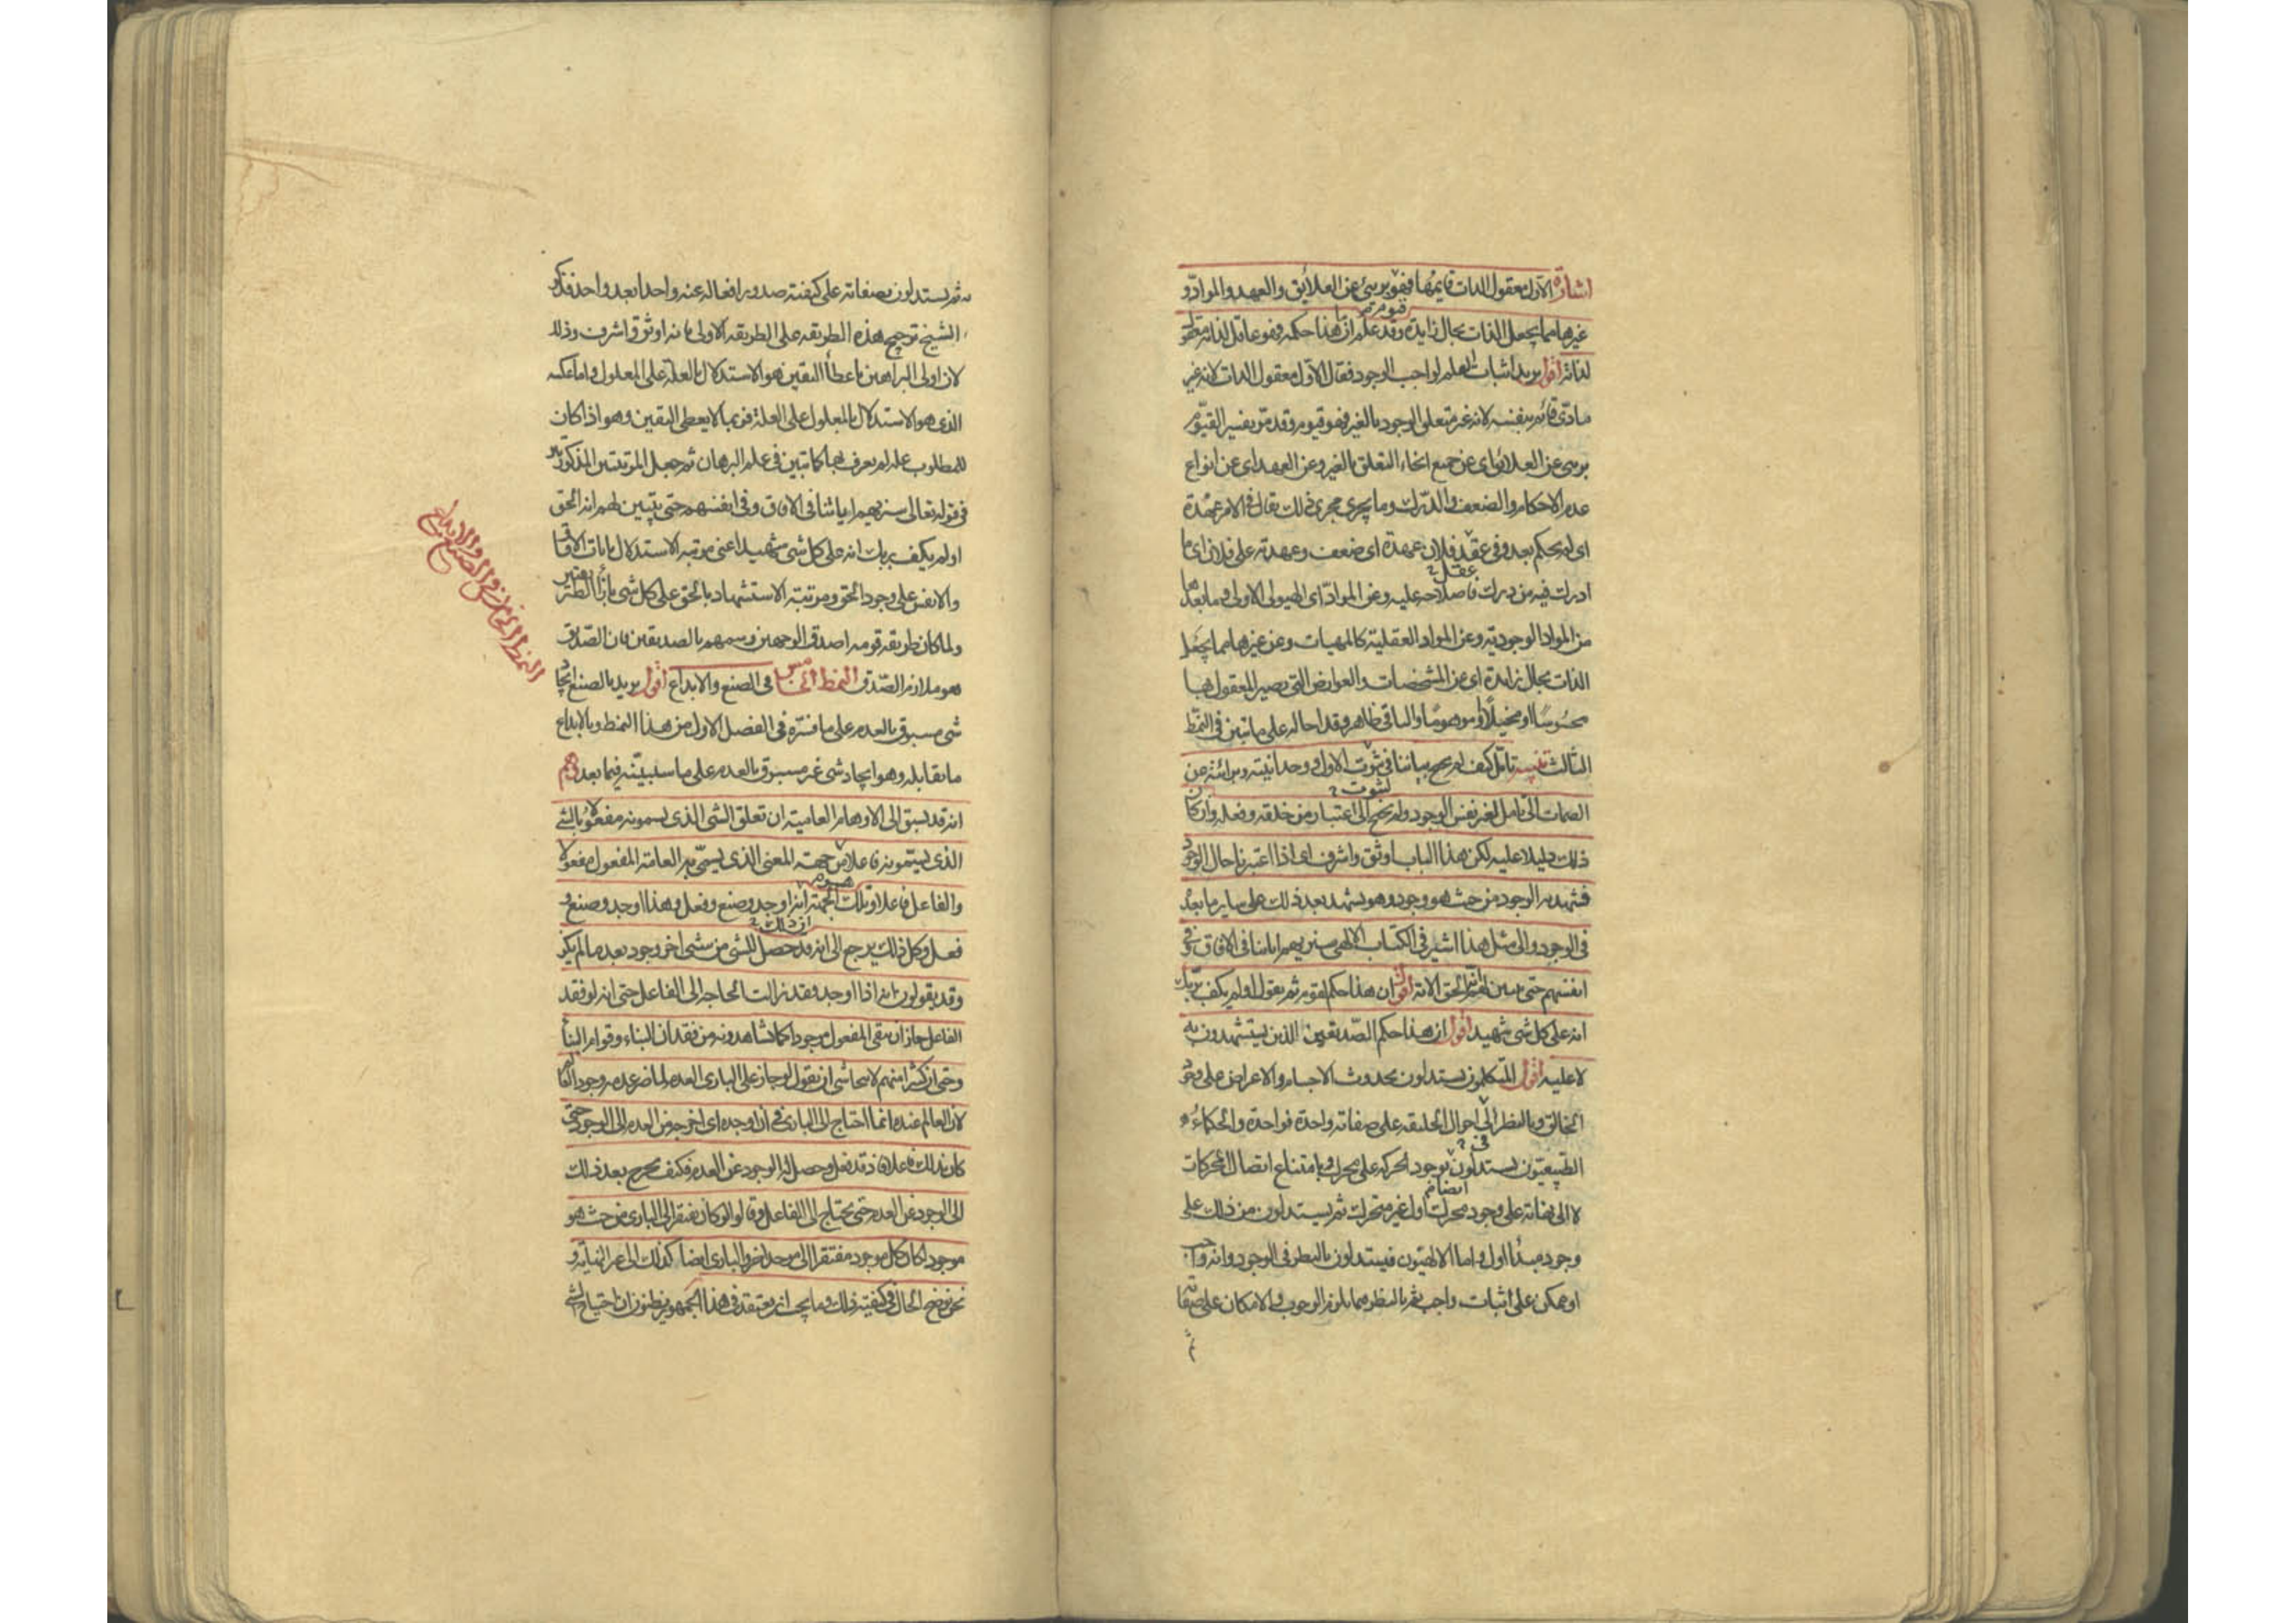 اشارة الاول معقول الذات قايمها فهو برىء عن العلائق والعهد والموادّ و
قيوم
غيرها مما يجعل الذات بحال زايدة وقد علم ان ما هذا حكمه فهو عاقل لذاته معقول
لذاته اقول يريد اثبات العلم لواجب الوجود فقال الاول معقول الذات لانه غير
مادّى قائم بنفسه لانه غير متعلق الوجود بالغير فهو قيوم وقد مرّ تفسير القيّوم
برىء عن العلائق اى عن جميع انحاء التعلق بالغير وعن العهد اى عن انواع
عدم الاحكام والضعف والدّرك وما يجرى مجرى ذلك يقال فى الامر عهدة
اى لم يحكم بعد وفى عقد فلان عهدة اى ضعف وعهدته على فلان اى ما
عقل
ادرك فيه من درك فاصلاحه عليه وعن الموادّ اى الهيولى الاولى وما بعدها
من المواد الوجوديّه وعن المواد العقليّة كالمهيات وعن غيرها مما يجعل
الذات بحال زايدة اى عن المشخصات والعوارض التى يصير المعقول بها
محسوسًا او مخيلًا او موهومًا والباقى ظاهر وقد احاله على ما تبين فى النمط
الثالث تنبيه تأمّل كيف لم يحتج بياننا فى ثبوت الاول و وحدانيته وبرائته من
لثبوت
الصمات الى تأمل لغير نفس الوجود ولم يحتج الى اعتبار من خلقه وفعله وان كان
ذلك دليلا عليه لكن هذا الباب اوثق واشرف اى اذا اعتبرنا حال الوجود
فشهد به الوجود من حيث هو وجود وهو يشهد بعد ذلك على ساير ما بعده
فى الوجود والى مثل هذا اشير فى الكتاب الالهى سنريهم اياتنا فى الافاق وفى
انفسهم حتى يتبين لهم انه الحق الاية اقول ان هذا حكم لقوم ثم يقول اولم يكف بربك
انه على كل شى شهيد اقول ان هذا حكم الصّديقين الذين يستشهدون به
لا عليه اقول المتكلمون يستدلون بحدوث الاجسام والاعراض على وجود
الخالق وبالنظر الى احوال الخليقه على صفاته واحدة فواحدة والحكماء
فى
الطبيعيّون يستدلون بوجود الحركه على محرك وبامتناع اتصال المحركات
ايضا
لا الى نهاية على وجود محرك اول غير متحرك ثم يستدلون من ذلك على
وجود مبدأ اول واما الالهيّون فيستدلون بالنظر فى الوجود وانه واجب
او ممكن على اثبات واجب ثم بالنظر فيما يلزم الوجوب والامكان على صفاته
ثم
ثم يستدلون بصفاته على كيفية صدور افعاله عنه واحدا بعد واحد فذكر
الشيخ ترجيح هذه الطريقه على الطريقه الاولى بانه اوثق واشرف وذلك
لان اولى البراهين باعطاء اليقين هو الاستدلال بالعلة على المعلول واما عكسه
الذى هو الاستدلال بالمعلول على العلة فربما لا يعطى اليقين وهو اذا كان
للمطلوب علة لم يعرف بها كما تبين فى علم البرهان ثم جعل المرتبتين المذكورتين
فى قوله تعالى سنريهم اياتنا فى الافاق وفى انفسهم حتى يتبين لهم انه الحق
اولم يكف بربك انه على كل شى شهيد اعنى مرتبة الاستدلال بايات الافاق
والانفس على وجود الحق ومرتبة الاستشهاد بالحق على كل شى بازاء الطريقتين
ولما كان طريقه قومه اصدق الوجهين وسمهم بالصديقين فان الصّديق
هو ملازم الصّدق النمط الخامس فى الصنع والابداع اقول يريد بالصنع ايجاد
شى مسبوق بالعدم على ما فسّره فى الفصل الاول من هذا النمط وبالابداع
ما يقابله وهو ايجاد شى غير مسبوق بالعدم على ما سيبيّنه فيما بعد وهم
انه قد يسبق الى الاوهام العامية ان تعلق الشى الذى يسمونه مفعولا بالشى
الذى يسمّونه فاعلا من جهة المعنى الذى يسمّى به العامة المفعول مفعولا
هو
والفاعل فاعلا وتلك الجهة انه اوجد وصنع وفعل وهذا اوجد وصنع و
ان ذلك
فعل وكل ذلك يرجع الى انه قد حصل للشى من شى اخر وجود بعد ما لم يكن
وقد يقولون انه اذا اوجد وفقد زالت الحاجه الى الفاعل حتى انه لو فقد
الفاعل جاز ان يبقى المفعول موجودا كما تشاهدونه من فقدان البناء وقوام البناء
وحتى ان كثيرا منهم لا يتحاشى ان يقول لو جاز على البارى العدم لما ضر عدمه وجود العالم
لان العالم عنده انما احتاج الى البارى فى ان اوجده اى اخرجه من العدم الى الوجود حتى
كان بذلك فاعلا فاذ قد فعل وحصل له الوجود عن العدم فكيف يخرج بعد ذلك
الى الوجود عن العدم حتى يحتاج الى الفاعل وقالوا لو كان يفتقر الى البارى من حيث هو
موجود لكان كل موجود مفتقرا الى موجد اخر والبارى ايضا كذلك الى غير النهاية و
نحن نوضح الحال فى كيفية ذلك وما يجب ان يعتقد فى هذا الجمهور يظنون ان احتياج الشى
النمط الخامس فى الصنع والابداع